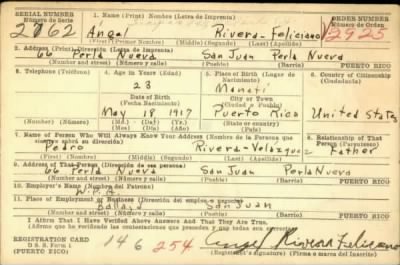 SERIAL NUMBER 1. Name (Print) Nombre (Letra de Imprenta) ORDER NUMBER
Número de Serie Número de Orden
2762 Angel Rivera-Feliciano 2925
(First) (Primer Nombre) (Middle) (Segundo) (Last) (Apellido)
2. Address (Print) Dirección (Letra de Imprenta)
66 Perla Nueva San Juan Perla Nueva
(Number and street) (Número y calle) (Town) (Pueblo) PUERTO RICO
3. Telephone (Teléfono) 4. Age in Years (Edad) 5. Place of Birth (Lugar de Nacimiento) 6. Country of Citizenship (Ciudadanía)
23 Manatí
Date of Birth (Fecha Nacimiento) (Town or City) (Ciudad o Pueblo)
May 18 1917 Puerto Rico United States
(Mo.) (Day) (Yr.) (State or country)
7. Name of Person Who Will Always Know Your Address (Nombre de la Persona que siempre sabrá su dirección) 8. Relationship of That Person (Parentesco)
Pedro Rivera-Velazquez Father
(First) (Nombre) (Middle) (Segundo) (Last) (Apellido)
9. Address of That Person (Dirección de esa persona)
66 Perla Nueva San Juan Perla Nueva
(Number and street) (Número y calle) (Town) (Pueblo) PUERTO RICO
10. Employer's Name (Nombre del Patrono)
W.P.A.
11. Place of Employment or Business (Dirección del empleo o negocio)
San Juan
(Number and street) (Número y calle) (Town) (Pueblo) PUERTO RICO
I Affirm That I Have Verified Above Answers And That They Are True.
(Afirmo que he verificado las contestaciones que preceden y que todas son ciertas)
REGISTRATION CARD 146 254 Angel Rivera Feliciano
D. S. S. Form 1
(PUERTO RICO) (Registrant's signature) (Firma o marca del Inscrito)